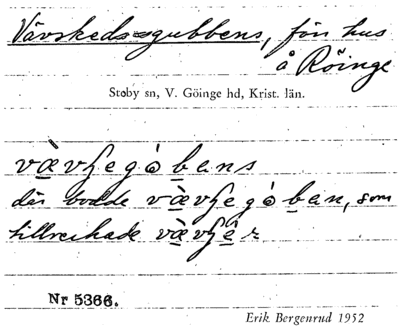 Vävskeds-gubbens, fön hus
å Röinge
Stoby sn, V. Göinge hd, Krist. län.
vævʃegòbens
där bodde vævʃegòben, som
tillverkade vævʃêr
Nr 5366.
Erik Bergenrud 1952